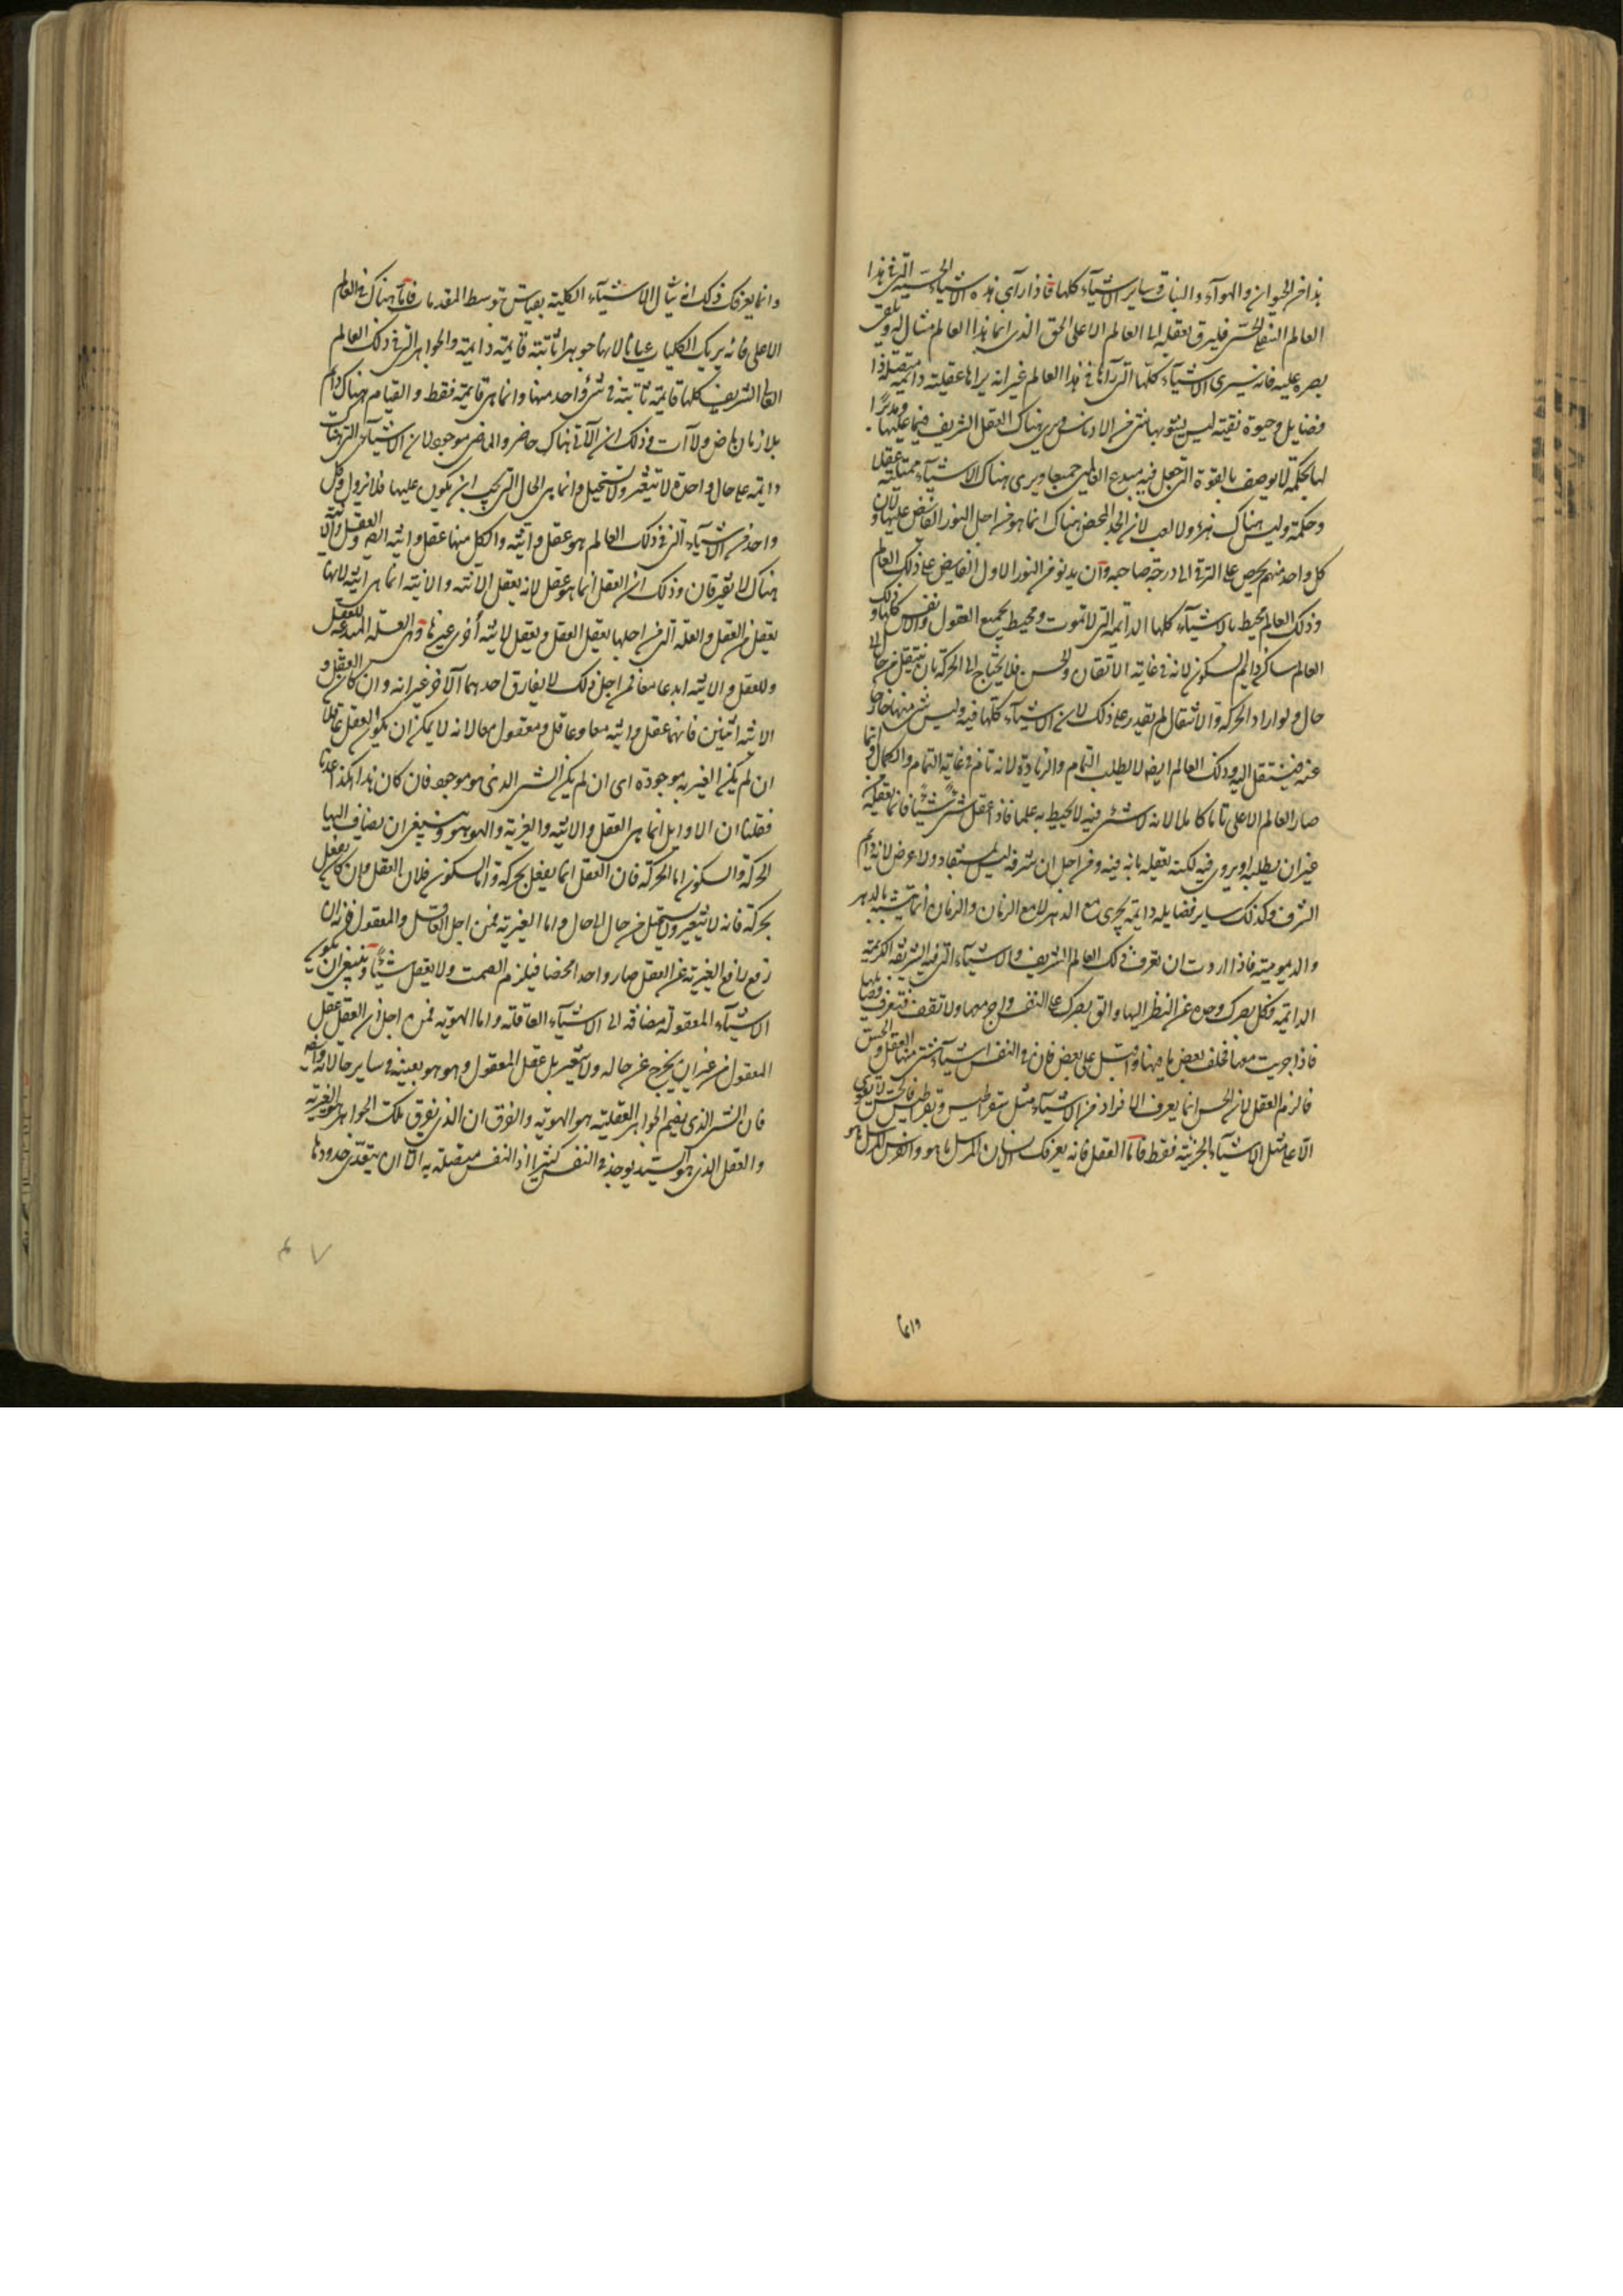 هذا من الحيوان والهواء والنبات وساير الاشيآء كلها فاذا رآى هذه الاشياء الحسية التى فى هذا
العالم السفلى الحسى فليرق بعقله الى العالم الاعلى الحق الذى انما هذا العالم مثال له ويلقى
بصره عليه فانه سيرى الاشيآء كلّها التى رآها فى هذا العالم غير انه يراها عقلية دائمة متصلة ذا
فضايل وحيوة نقية ليس يشوبها شى من الادناس ويرى هناك العقل الشريف قيما عليها ومدبرًا
لها بحكمة لا يوصف بالقوة التى جعل فيه مبدع العالمين جميعا ويرى هناك الاشيآء ممتلئة عقلا
وحكمة وليس هناك هزء ولا لعب لان الجد المحض هناك انما هو من اجل النور الفايض عليها ولان
كل واحد منهم يحرص على الترقى الى درجة صاحبه وان يدنو من النور الاول الفايض على ذلك العالم
وذلك العالم محيط بالاشيآء كلها الدائمة التى لا تموت ومحيط بجميع العقول والانفس كلها وذلك
العالم ساكن دايم السكون لانه فى غاية الاتقان والحسن فلا يحتاج الى الحركة بان ينتقل من حال الى
حال ولو اراد الحركة والانتقال لم يقدر على ذلك لان الاشيآء كلها فيه وليس شى منها خارجا
عنه فينتقل اليه وذلك العالم ايضا لا يطلب التمام والزيادة لانه تام فى غاية التمام والكمال وانما
صار العالم الاعلى تاما كاملا لانه لا شئ فيه لا يحيط به علما فاذا عقل شيئا فانما يعقله من
غير ان يطلبه او يروى فيه لكنه يعقله بانه فيه ومن اجل ان شرفه ليس بمستفاد ولا عرض لانه دايم
الشرف وكذلك ساير فضايله دايمة يجرى مع الدهر لا مع الزمان والزمان انما يتشبه بالدهر
والديمومية فاذا اردت ان تعرف ذلك العالم الشريف والاشيآء التى فيه الشريفة الكريمة
الدائمة فكل بصرك وحده عن النظر اليها والق بصرك على النفس واجر معها ولا تقف فتعرف فضايلها
فاذا جريت معها فخلف بعض ما فيها واقبل على بعض فان فى النفس اشيآء شتى منها العقل والحس
فالزم العقل لان الحس انما يعرف الافراد من الاشيآء مثل سقراطيس وبقراطيس فالحس لا يقوى
الا على مثل الاشيآء الجزئية فقط فاما العقل فانه يعرفك الانسان المرسل ما هو والفرس المرسل ما هو
وانما
وانما يعرفك ذلك ان ينال الاشيآء الكلية بقياس توسط المقدمات فاما هناك فى العالم
الاعلى فانه يريك الكليات عيانا لانها جواهر ثابتة قايمة دايمة والجواهر التى فى ذلك العالم
العالى الشريف كلها قايمة ثابتة فى شئ واحد منها وانما هى قايمة فقط والقيام هناك دايم
بلا زمان ماض ولا آت وذلك ان الآتى هناك حاضر والماضى موجود لان الاشيآء التى هناك
دايمة على حال واحدة لا تتغير ولا تستحيل وانما هى الحال التى يجب ان يكون عليها فلا تزول وكل
واحد من الاشيآء التى فى ذلك العالم هو عقل وانية والكل منها عقل وانية ايضا والعقل والانية
هناك لا يفترقان وذلك ان العقل انما هو عقل لانه يعقل الانية والانية انما هى انية لانها
يعقل من العقل والعلة التى من اجلها يعقل العقل ويعقل لانية أخرى غيرها وهى العلة المبدعة للعقل
وللعقل والانية ابدعا معا فمن اجل ذلك لا يفارق احدهما الآخر غير انه وان كان العقل و
الانية اثنين فانهما عقل وانية معا وعاقل ومعقول معا لانه لا يمكن ان يكون العقل عاقلا
ان لم يكن الغيرية موجودة اى ان لم يكن الشى الذى هو موجود فان كان هذا هكذا عدنا
فقلنا ان الاوايل انما هى العقل والانية والغيرية والهوهو وينبغى ان يضاف اليها
الحركة والسكون اما الحركة فان العقل انما يعقل بحركة واما السكون فلان العقل وان كان يعقل
بحركة فانه لا يتغير ولا يستحيل من حال الى حال واما الغيرية فمن اجل العاقل والمعقول فانه ان
رفع رافع الغيرية عن العقل صار واحدا محضا فيلزم الصمت ولا يعقل شيئاً وينبغى ان يكون
الاشيآء المعقولة مضافة الى الاشيآء العاقلة واما الهوية فمن اجل ان العقل عقل
المعقول من غير ان يخرج عن حاله ولا يتغير بل عقل المعقول وهو هو بعينه فى ساير حالاته
فان الشى الذى يضم الجواهر العقلية هو الهوية والفرق ان الذى يفرق تلك الجواهر هو الغيرية
والعقل الذى هو السيد يوجد فى النفس كثيرا اذ النفس متصلة به الا ان يتعدى حدودها
٧ ٤